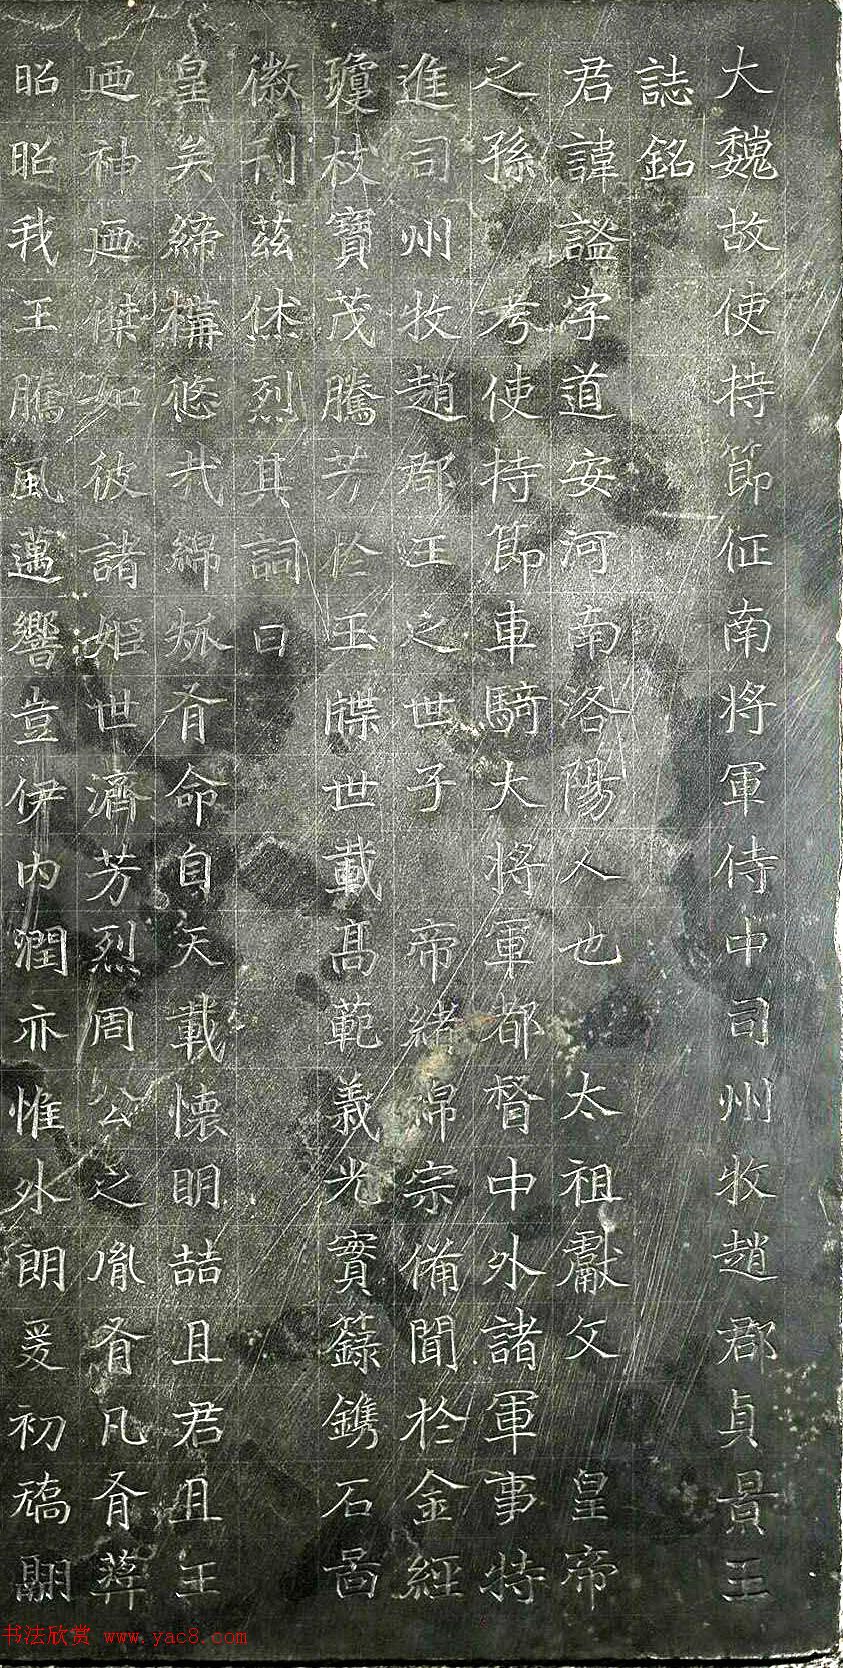 大魏故使持節征南將軍侍中司州牧趙郡貞景王
誌銘
君諱謐字道安河南洛陽人也 太祖獻文 皇帝
之孫 考使持節車騎大將軍都督中外諸軍事特
進司州牧趙郡王之世子 帝緒綿宗備聞於金經
瓊枝寶茂騰芳於玉牒世載高範義光實籙鐫石啚
徽刊茲烋烈其詞曰
皇矣締構悠哉綿有命自天載懷明喆且君且王
迺神迺傑如彼諸姬世濟芳烈周公之胤有凡有蔣
昭昭我王騰風邁響豈伊內潤亦惟外朗爰初矯翮
书法欣赏 www.yac8.com